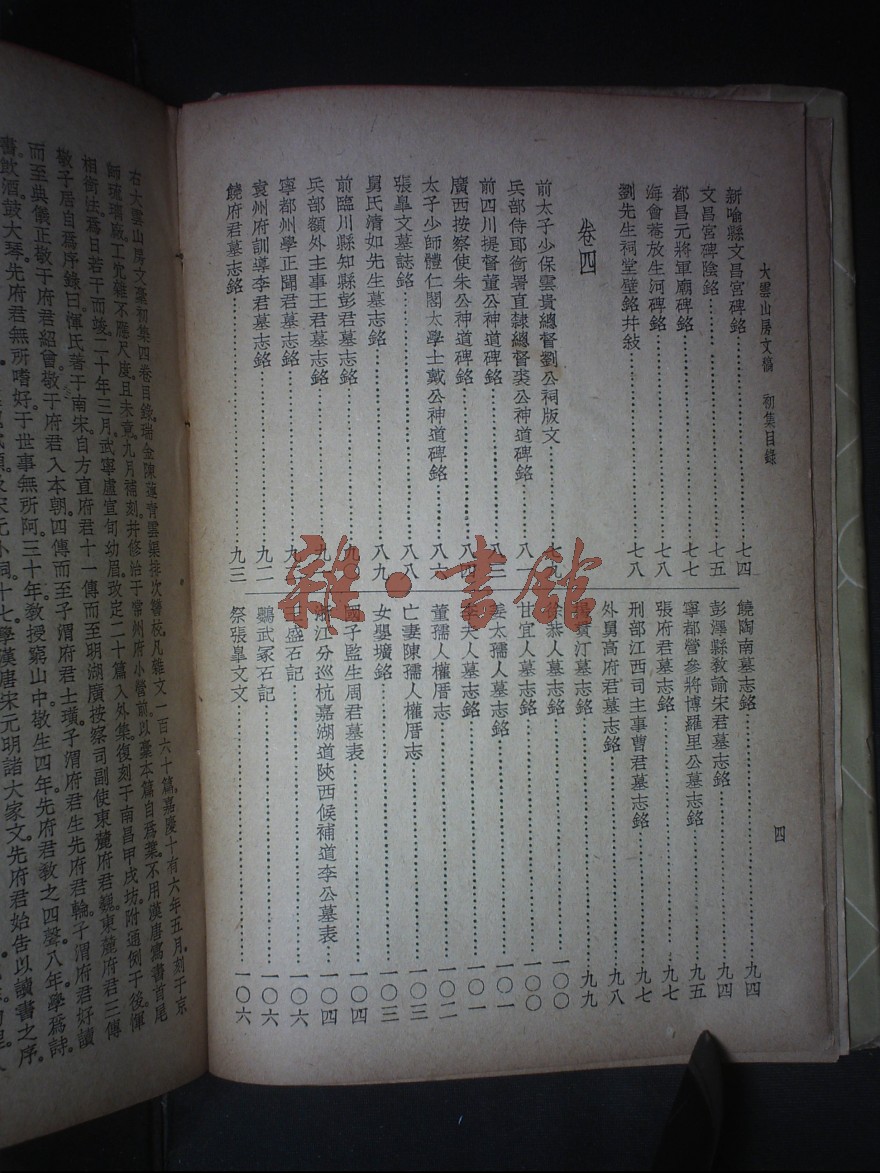 大雲山房文稿　初集目錄
四
新喻縣文昌宮碑銘……七四
文昌宮碑陰銘……七五
都昌元將軍廟碑銘……七七
海會菴放生河碑銘……七八
劉先生祠堂壁銘并敍……七八
卷四
前太子少保雲貴總督劉公祠版文……七九
兵部侍郎銜署直隸總督裘公神道碑銘……八一
前四川提督董公神道碑銘……八三
廣西按察使朱公神道碑銘……八四
太子少師體仁閣大學士戴公神道碑銘……八六
張臯文墓誌銘……八八
舅氏清如先生墓志銘……八九
前臨川縣知縣彭君墓志銘……九〇
兵部額外主事王君墓志銘……九
寧都州學正聞君墓志銘……九
袁州府訓導李君墓志銘……九二
饒府君墓志銘……九三
饒陶南墓志銘……九四
彭澤縣教諭宋君墓志銘……九四
寧都營參將博羅里公墓志銘……九五
張府君墓志銘……九七
刑部江西司主事曹君墓志銘……九七
外舅高府君墓志銘……九八
楊貢汀墓志銘……九九
徐恭人墓志銘……一〇〇
甘宜人墓志銘……一〇〇
姜太孺人墓志銘……一〇一
李夫人墓志銘……一〇一
董孺人權厝志……一〇二
亡妻陳孺人權厝志……一〇三
女嬰壙銘……一〇三
國子監生周君墓表……一〇四
浙江分巡杭嘉湖道陝西候補道李公墓表……一〇四
盛石記……一〇六
鸚武冢石記……一〇六
祭張臯文文……一〇六
雜·書館
右大雲山房文稾初集四卷目錄瑞金陳蓮青雲渠排次讐校凡雜文一百六十篇嘉慶十有六年五月刻于京
師琉璃廠工竟雜不應尺度且未竟九月補刻并修治于常州府小營前以臺本篇自爲葉不用漢唐寫書首尾
相銜法爲日若干而竣二十年三月武寧盧宣旬幼眉攷定二十篇入外集復刻于南昌甲戌坊附通例于後惲
敬子居自爲序錄曰惲氏著于南宋自方直府君十一傳而至明湖廣按察司副使東麓府君巍東麓府君三傳
而至典儀正敬于府君紹曾敬于府君入本朝四傳而至子渭府君士璜子渭府君生先府君輪子渭府君好讀
書飲酒鼓大琴先府君無所嗜好于世事無所阿三十年教授窮山中敬生四年先府君教之四聲八年學爲詩
十七學漢唐宋元明諸大家文先府君始告以讀書之序